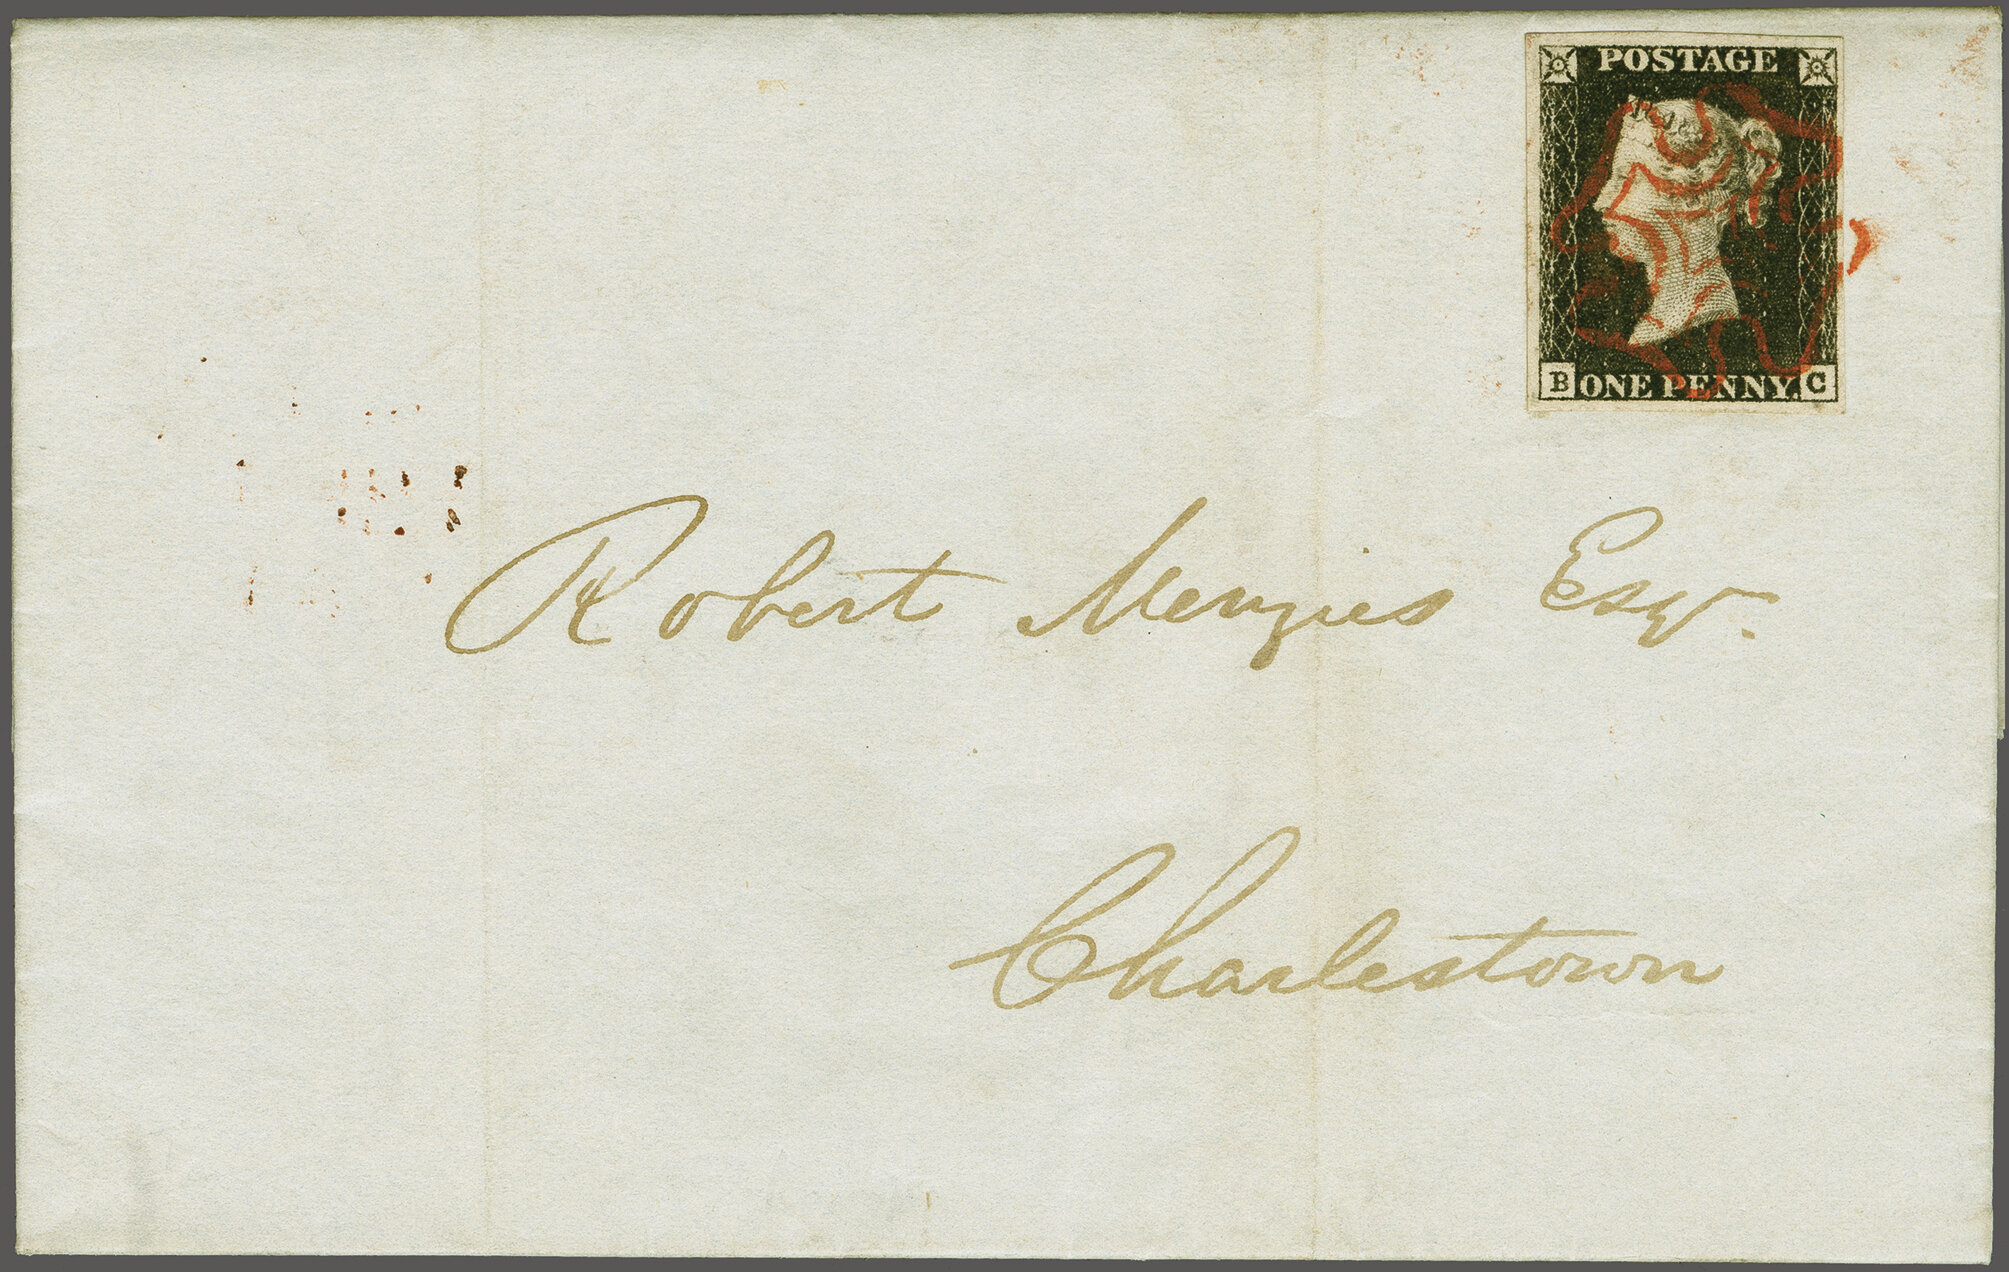 POSTAGE
B ONE PENNY. C
Robert Menzies Esqr.
Charlestown